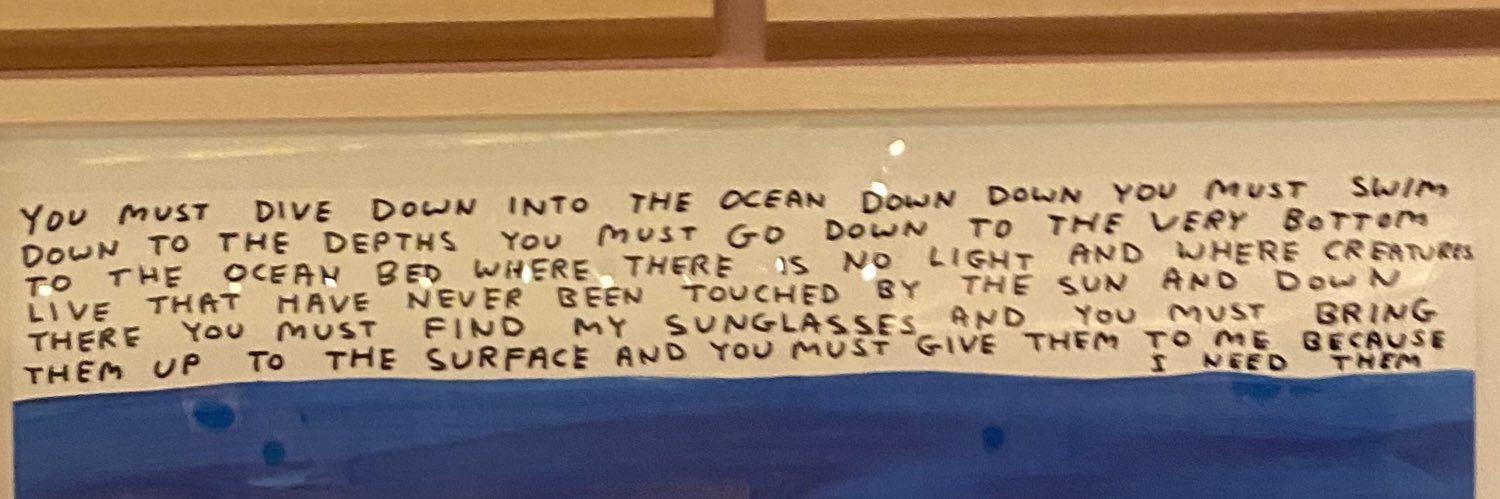 YOU MUST DIVE DOWN INTO THE OCEAN DOWN DOWN YOU MUST SWIM
DOWN TO THE DEPTHS YOU MUST GO DOWN TO THE VERY BOTTOM
TO THE OCEAN BED WHERE THERE IS NO LIGHT AND WHERE CREATURES
LIVE THAT HAVE NEVER BEEN TOUCHED BY THE SUN AND DOWN
THERE YOU MUST FIND MY SUNGLASSES AND YOU MUST BRING
THEM UP TO THE SURFACE AND YOU MUST GIVE THEM TO ME BECAUSE
I NEED THEM